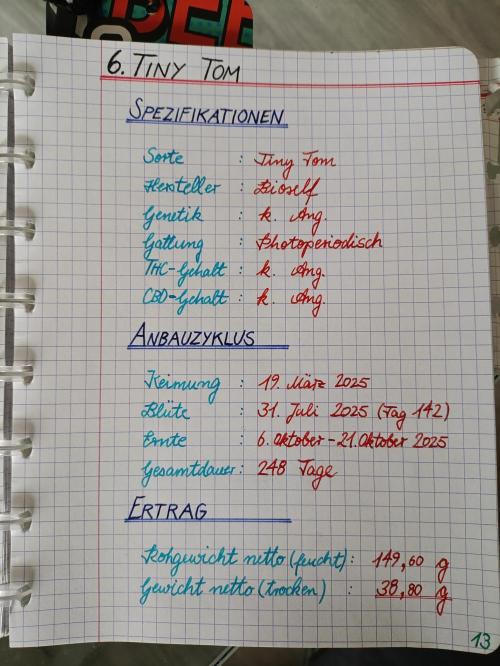 6. TINY TOM
SPEZIFIKATIONEN
Sorte : Tiny Tom
Hersteller : Bioself
Genetik : k. Ang.
Gattung : Photoperiodisch
THC-Gehalt : k. Ang.
CBD-Gehalt : k. Ang.
ANBAUZYKLUS
Keimung : 19. März 2025
Blüte : 31. Juli 2025 (Tag 142)
Ernte : 6. Oktober - 21. Oktober 2025
Gesamtdauer: 248 Tage
ERTRAG
Rohgewicht netto (feucht): 149,60 g
Gewicht netto (trocken) : 38,80 g
13